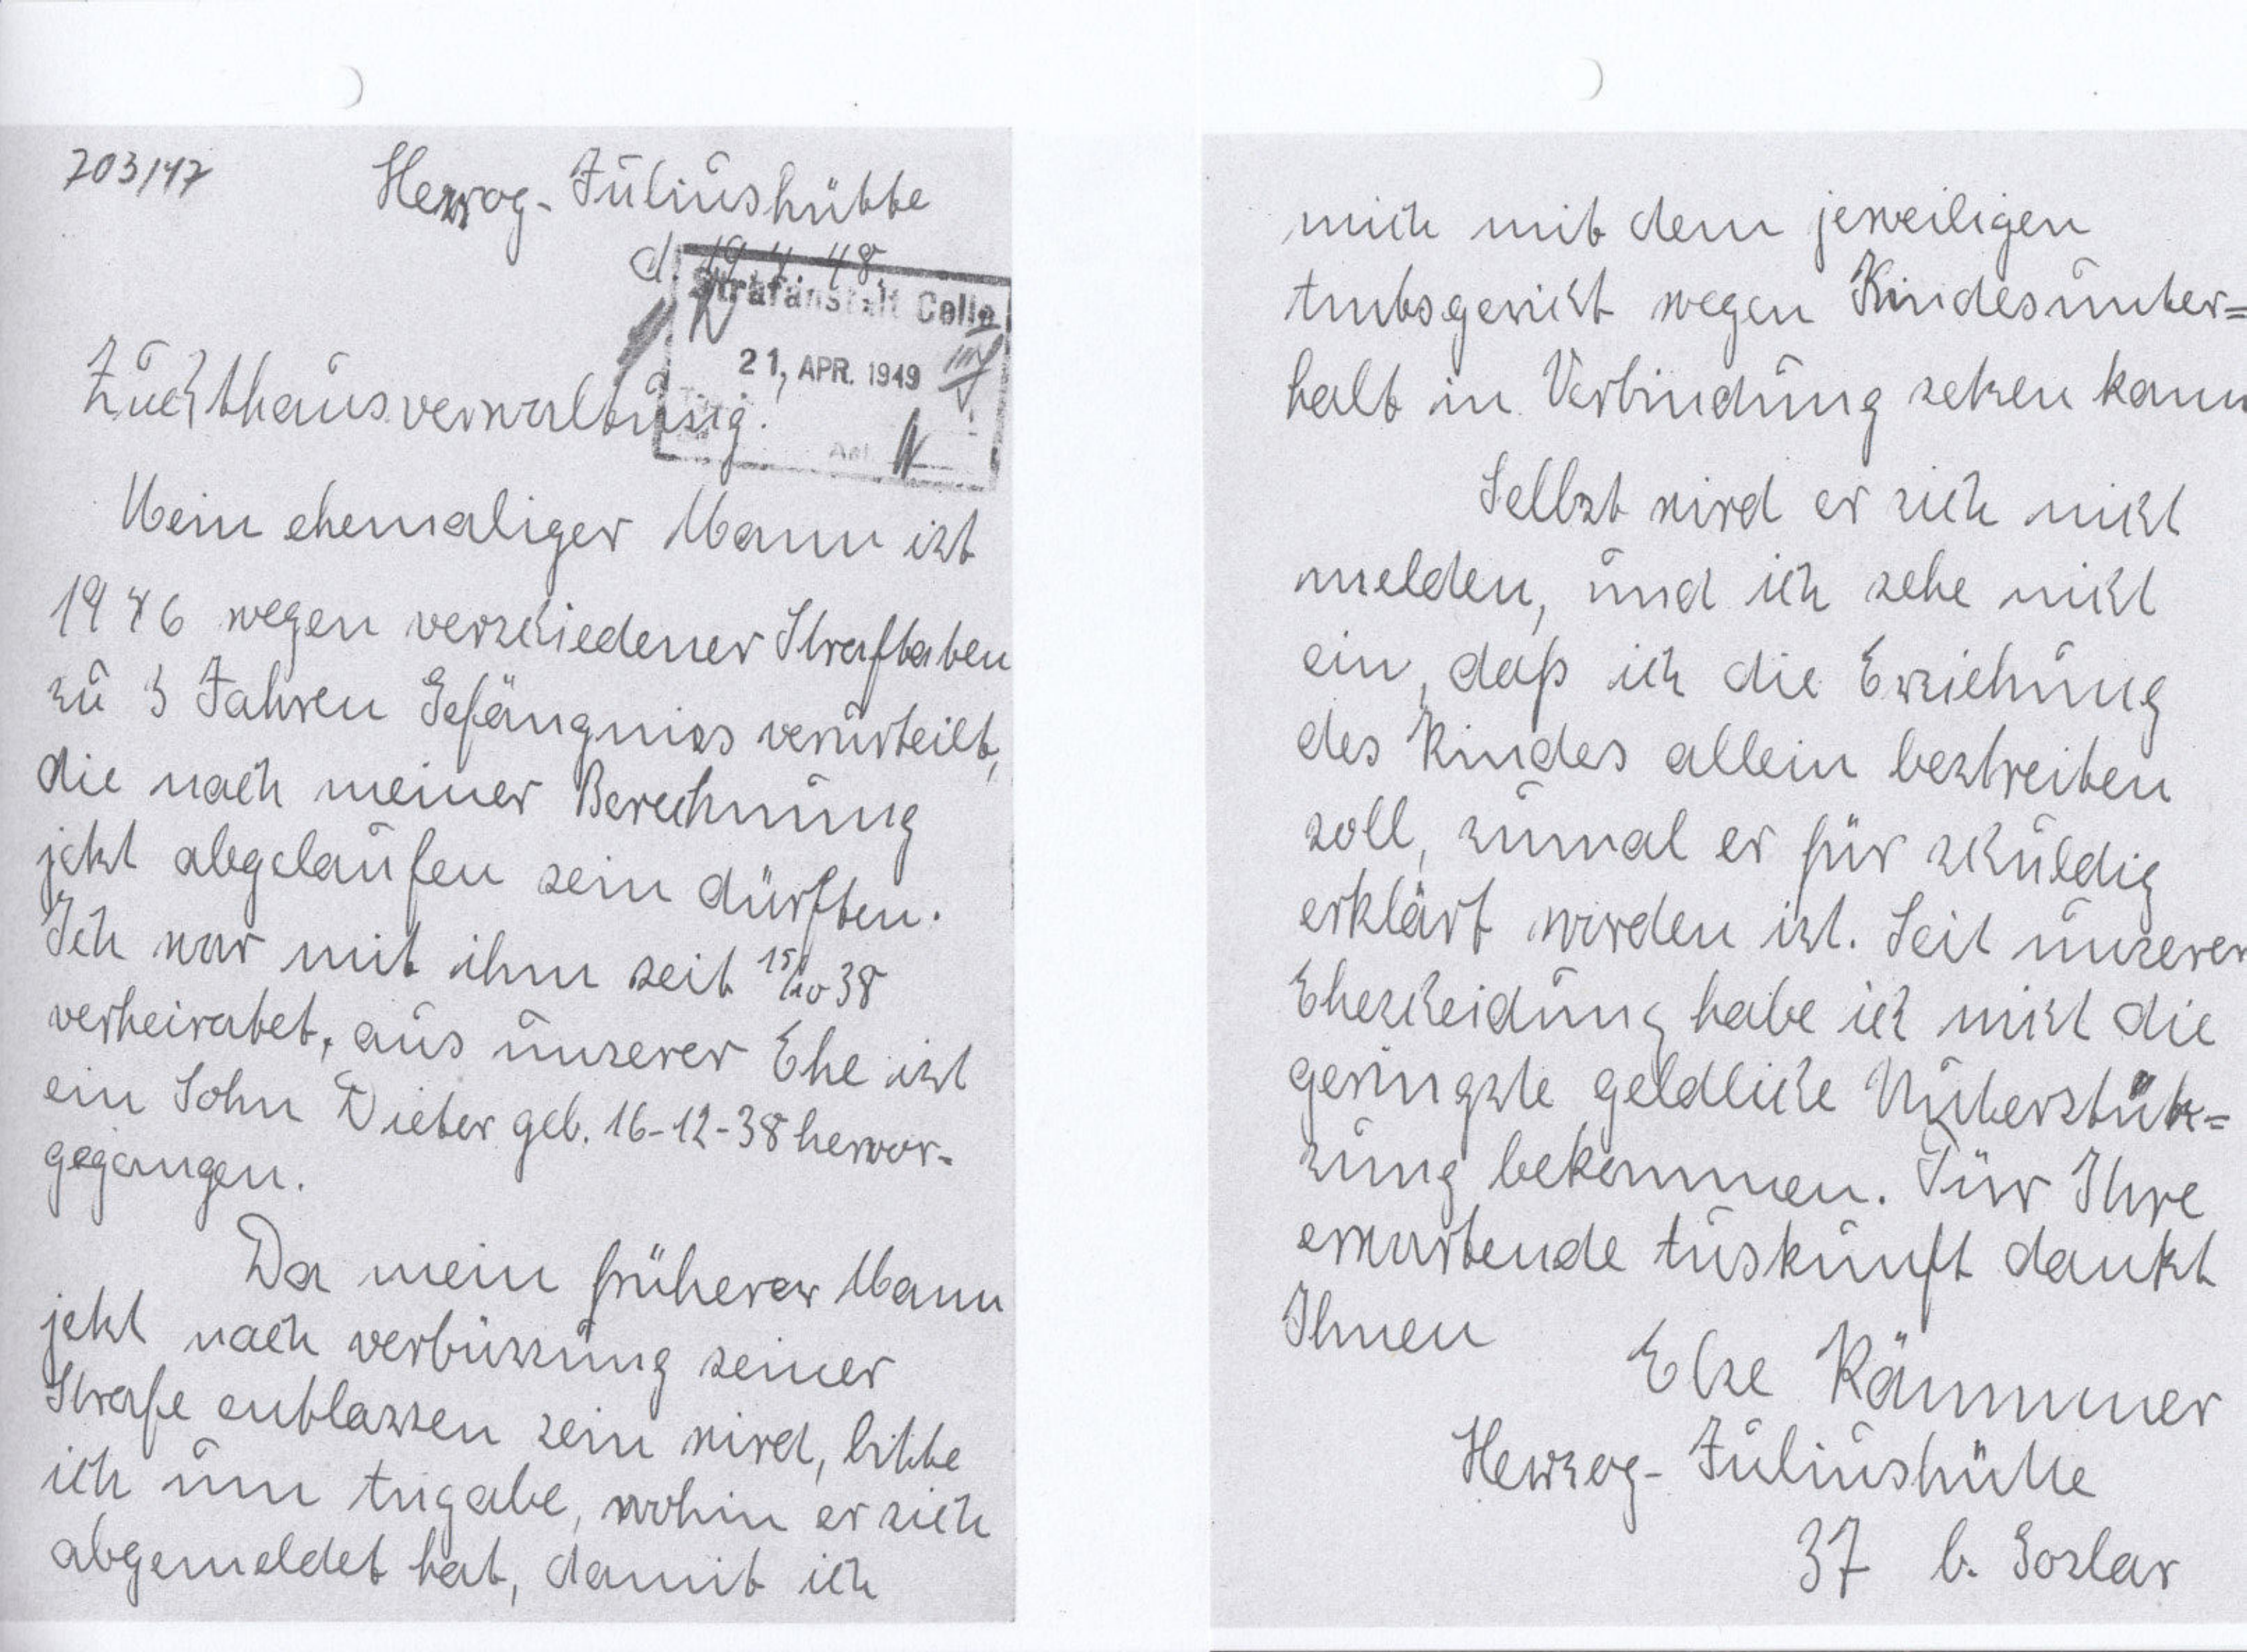 703/47
Herzog-Juliushütte
d. 19. 4. 48.
Strafanstalt Celle
21. APR. 1949
Anl.
Zuchthausverwaltung.
Mein ehemaliger Mann ist
1946 wegen verschiedener Straftaten
zu 3 Jahren Gefängniss verurteilt,
die nach meiner Berechnung
jetzt abgelaufen sein dürften.
Ich war mit ihm seit 15/10 38
verheiratet, aus unserer Ehe ist
ein Sohn Dieter geb. 16-12-38 hervor-
gegangen.
Da mein früherer Mann
jetzt nach verbüssung seiner
Strafe entlassen sein wird, bitte
ich um Angabe, wohin er sich
abgemeldet hat, damit ich
mich mit dem jeweiligen
Amtsgericht wegen Kindesunter=
halt in Verbindung setzen kann
Selbst wird er sich nicht
melden, und ich sehe nicht
ein, daß ich die Erziehung
des Kindes allein bestreiten
soll, zumal er für schuldig
erklärt worden ist. Seit unserer
Ehescheidung habe ich nicht die
geringste geldliche Unterstütz=
zung bekommen. Für Ihre
erwartende Auskunft dankt
Ihnen
Else Kämmer
Herzog-Juliushütte
37 b. Goslar